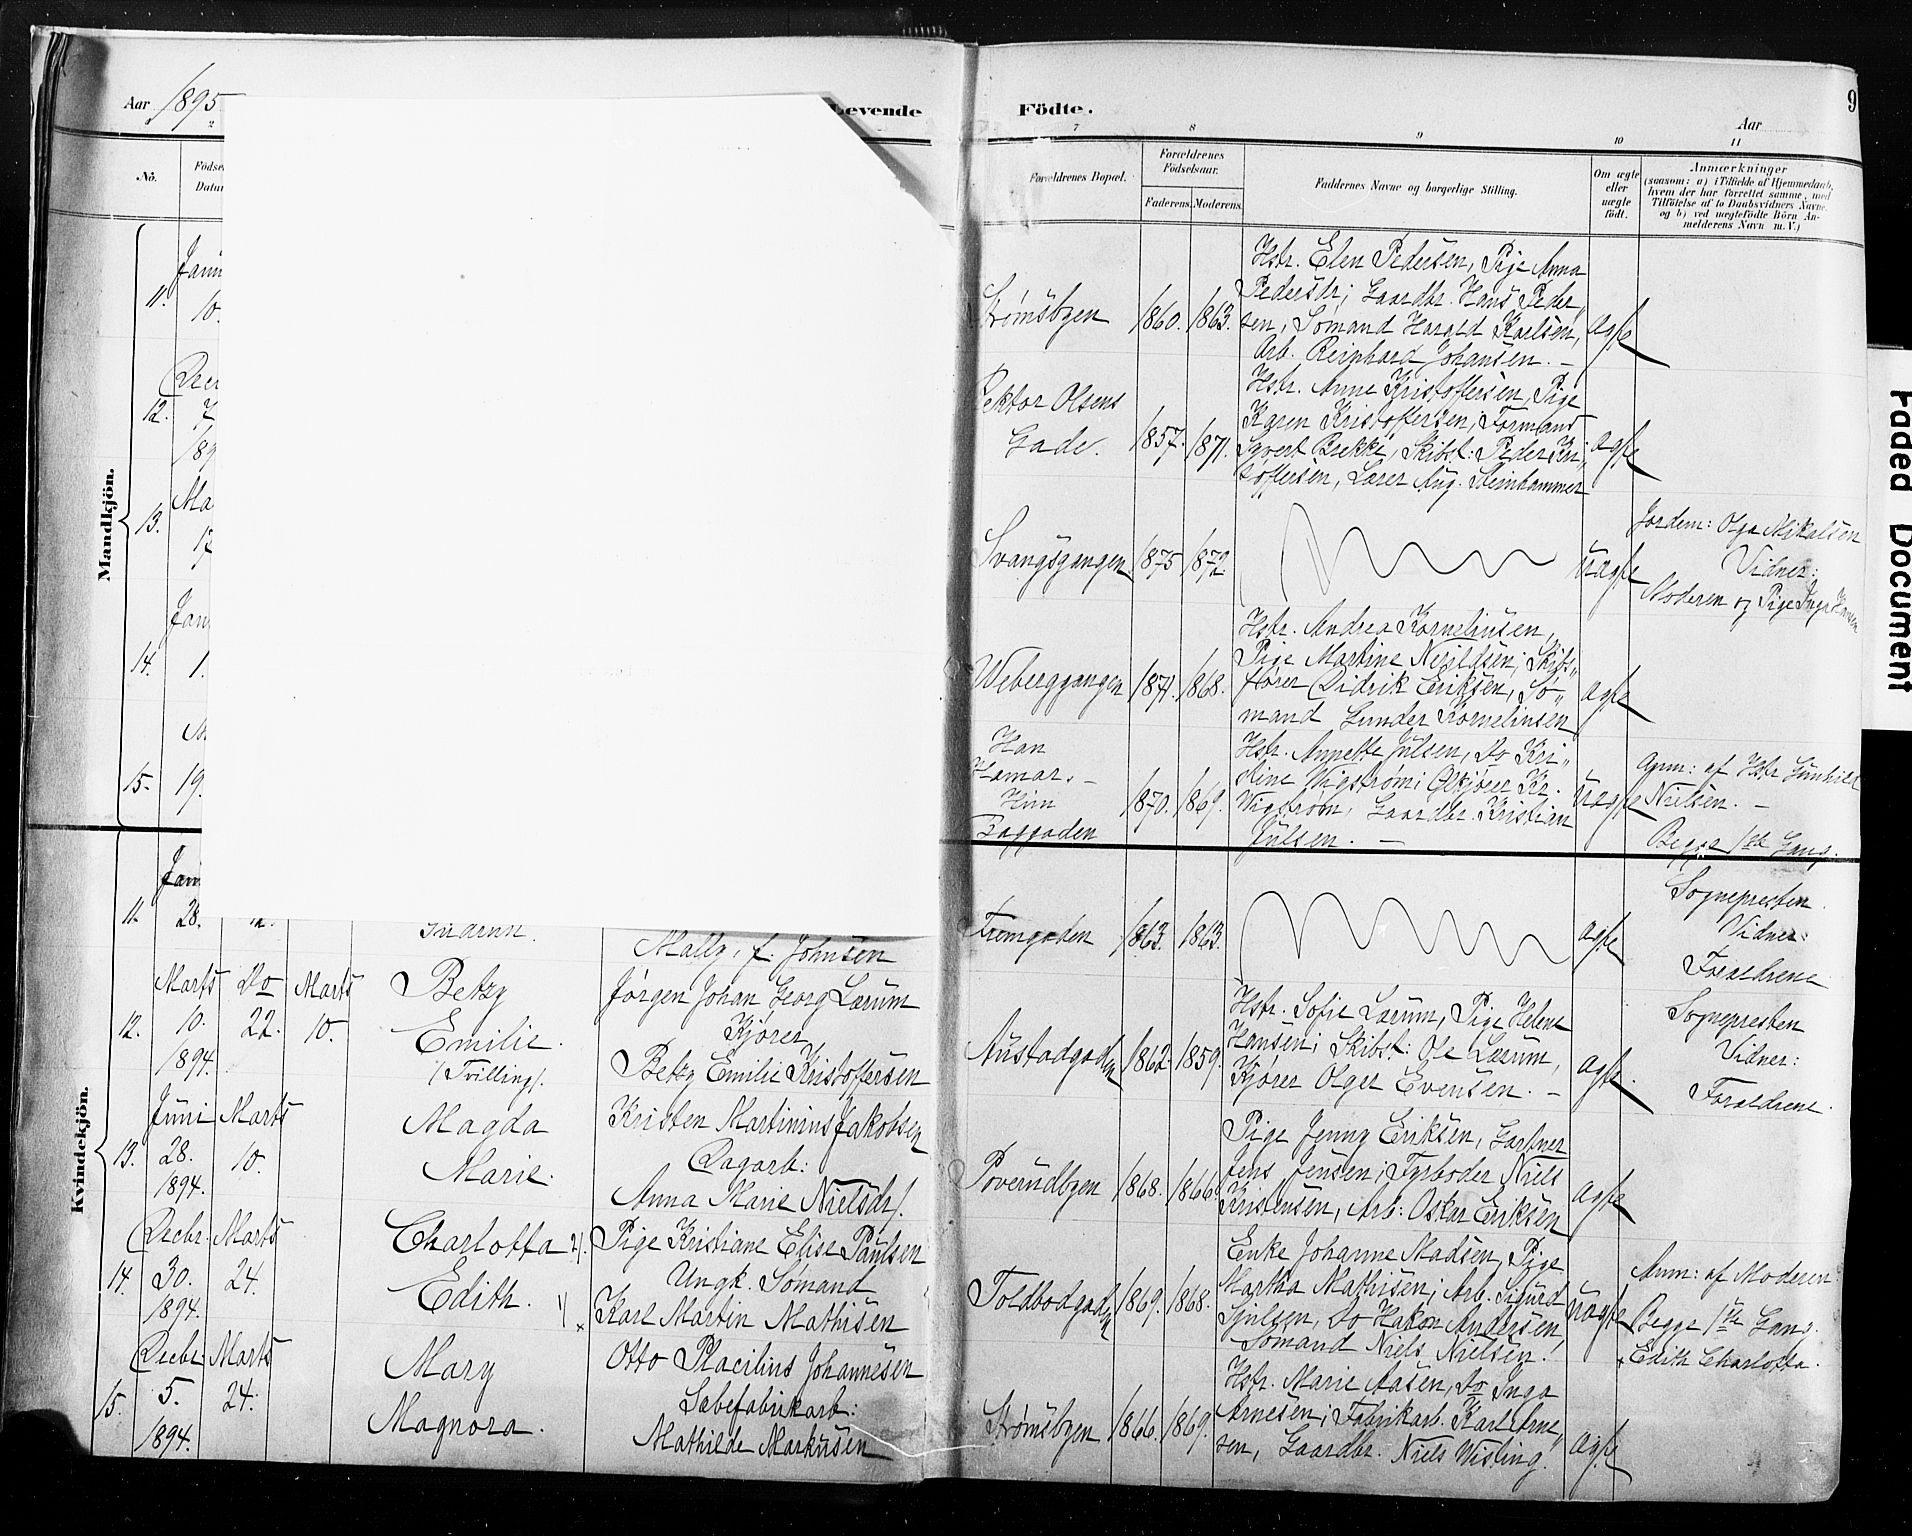 Aar 1895
Levende
Födte.
Aar
9
2
7
8
9
10
11
No.
Födsels
Datum
Forældrenes Bopæl.
Forældrenes Födselsaar.
Faderens.
Moderens.
Faddernes Navne og borgerlige Stilling.
Om ægte
eller
uægte
födt.
Anmærkninger
(saasom: a) i Tilfælde af Hjemmedaab,
hvem der har forrettet samme, med
Tilföielse af to Daabsvidners Navne.
og b) ved uægtefödte Börn An-
melderens Navn m. V.)
Mandkjön.
11.
10.
Strømsbyen
1860.
1863.
Hstr. Elen Pedersen, Pige Anna
Pedersdr; Gaardbr. Hans Peder,,
sen, Sømand Harald Karlsen,
Arb. Reinhard Johansen. –
ægte
12.
7
189
Rektor Olsens
Gade.
1857.
1871.
Hstr. Anne Kristoffersen, Pige
Karen Kristoffersen; Formand
Syvert Brekke, Skibst: Peder Kri,,
stoffersen, Lærer Aug. Steinhammer
ægte
13.
Ma
17
Svangsgangen
1875
1872.
uægte
Jordem: Olga Mikalsen
Vidner:
Moderen og Pige Inga Hansen
14.
1.
Weberggangen
1871.
1868.
Hstr. Andrea Korneliusen,
Pige Martine Neildsen; Skibs,,
fører Didrik Eriksen, Sø,,
mand Gunder Korneliusen
ægte
15.
19.
Han
Hamar. –
Hun
Baggaden
1870.
1869.
Hstr. Annette Julsen, Do Kri,,
stine Wigstrøm; Ølkjører Kr.
Wigstrøm, Gaardbr. Kristian
Julsen. –
uægte
Anm: af Hstr Gunhild
Nielsen. –
Begge 1ste Gang.
Kvindekjön.
11.
28.
12.
Gudrun.
Mally, f. Johnsen
Tremgaden
1863.
1863.
ægte
Sognepresten.
Vidner:
Forældrene
12.
Marts
10.
1894.
Do
22.
Marts
10.
Betzy
Emilie.
/(Tvilling/.
Jørgen Johan Georg Larum
Kjører
Betzy Emilie Kristoffersen
Austadgaden
1862.
1859.
Hstr. Sofie Larum, Pige Helene
Hansen; Skibst: Ole Larum,
Kjører Olger Evensen. –
ægte.
Sognepresten
Vidner:
Forældrene.
13.
Juni
28.
1894.
Marts
10.
Magda
Marie.
Kristen Martinius Jakobsen
Dagarb:
Anna Marie Nielsdr/.
Poverudbyen
1868.
1866.
Pige Jenny Eriksen, Gartner
Jens Jensen; Fyrbøder Niels
Kristensen, Arb: Oskar Eriksen
ægte
14.
Decbr.
30.
1894.
Marts
24.
Charlotta 2/.
Edith. 1/
Pige Kristiane Elise Paulsen
Ungk. Sømand
× Karl Martin Mathisen
Toldbodgaden
1869.
1868.
Enke Johanne Madsen, Pige
Martha Mathisen; Arb. Sigurd
Sjulsen, Do Hakon Andersen,
Sømand Niels Nielsen.
uægte
Anm: af Moderen:
Begge 1ste Gang.
× Edith Charlotta.
15.
Decbr
5.
1894.
Marts
24.
Mary
Magnora.
Otto Placilius Johannesen
Sæbefabrikarb:
Mathilde Markusen
Strømsbyen
1866.
1869.
Hstr. Marie Aasen, Do Inga
Arnesen; Fabrikarb. Karl Arne,,
sen, Gaardbr. Niels Wisting.
ægte
Faded Document